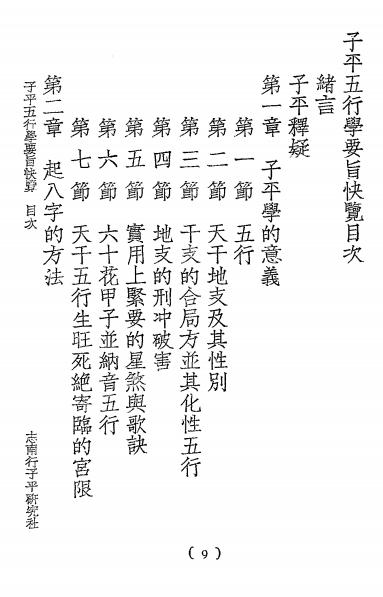 子平五行學要旨快覽目次
緒言
子平釋疑
第一章 子平學的意義
第一節 五行
第二節 天干地支及其性別
第三節 干支的合局方並其化性五行
第四節 地支的刑冲破害
第五節 實用上緊要的星煞與歌訣
第六節 六十花甲子並納音五行
第七節 天干五行生旺死絕寄臨的宮限
第二章 起八字的方法
子平五行學要旨快覽 目次
志南行子平研究社
(9)